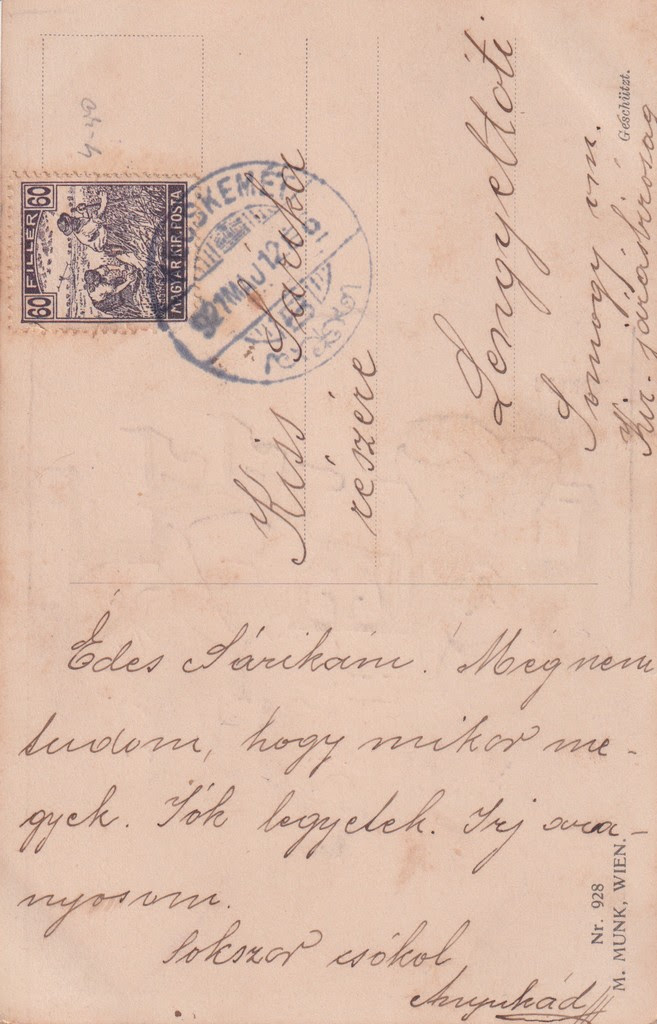 4-40
60 FILLÉR 60
MAGYAR KIR. POSTA
KECSKEMÉT
921 MÁJ 12
Kiss Sárika
részére
Lengyeltóti
Somogy vm.
Kir. járásbiróság
Geschützt.
Édes Sárikám! Még nem
tudom, hogy mikor me-
gyek. Jók legyetek. Irj ara-
nyosom.
Sokszor csókol
Anyukád
Nr. 928
M. MUNK, WIEN.